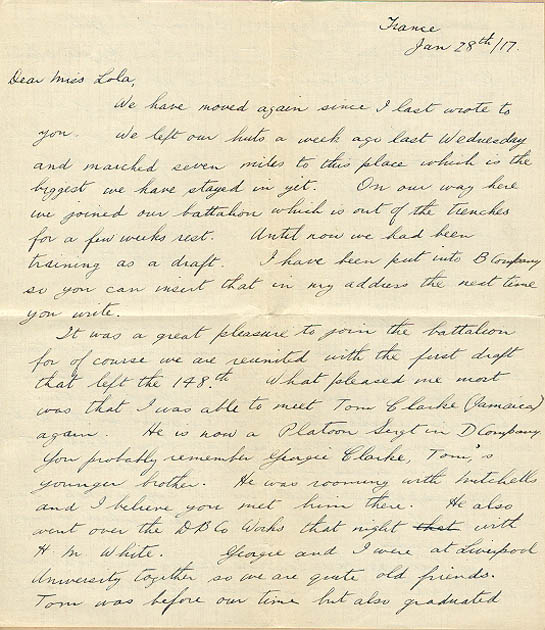 France
Jan 28th/17.
Dear Miss Lola,
We have moved again since I last wrote to
you. We left our huts a week ago last Wednesday
and marched seven miles to this place which is the
biggest we have stayed in yet. On our way here
we joined our battalion which is out of the trenches
for a few weeks rest. Until now we had been
training as a draft. I have been put into B Company
so you can insert that in my address the next time
you write.
It was a great pleasure to join the battalion
for of course we are reunited with the first draft
that left the 148.th What pleased me most
was that I was able to meet Tom Clarke (Jamaica)
again. He is now a Platoon Sergt in D Company.
You probably remember Georgie Clarke, Tom,'s
younger brother. He was rooming with Mitchells
and I believe you met him there. He also
went over the D B Co Works that night that with
H M White. Georgie and I were at Liverpool
University together so we are quite old friends.
Tom was before our time but also graduated